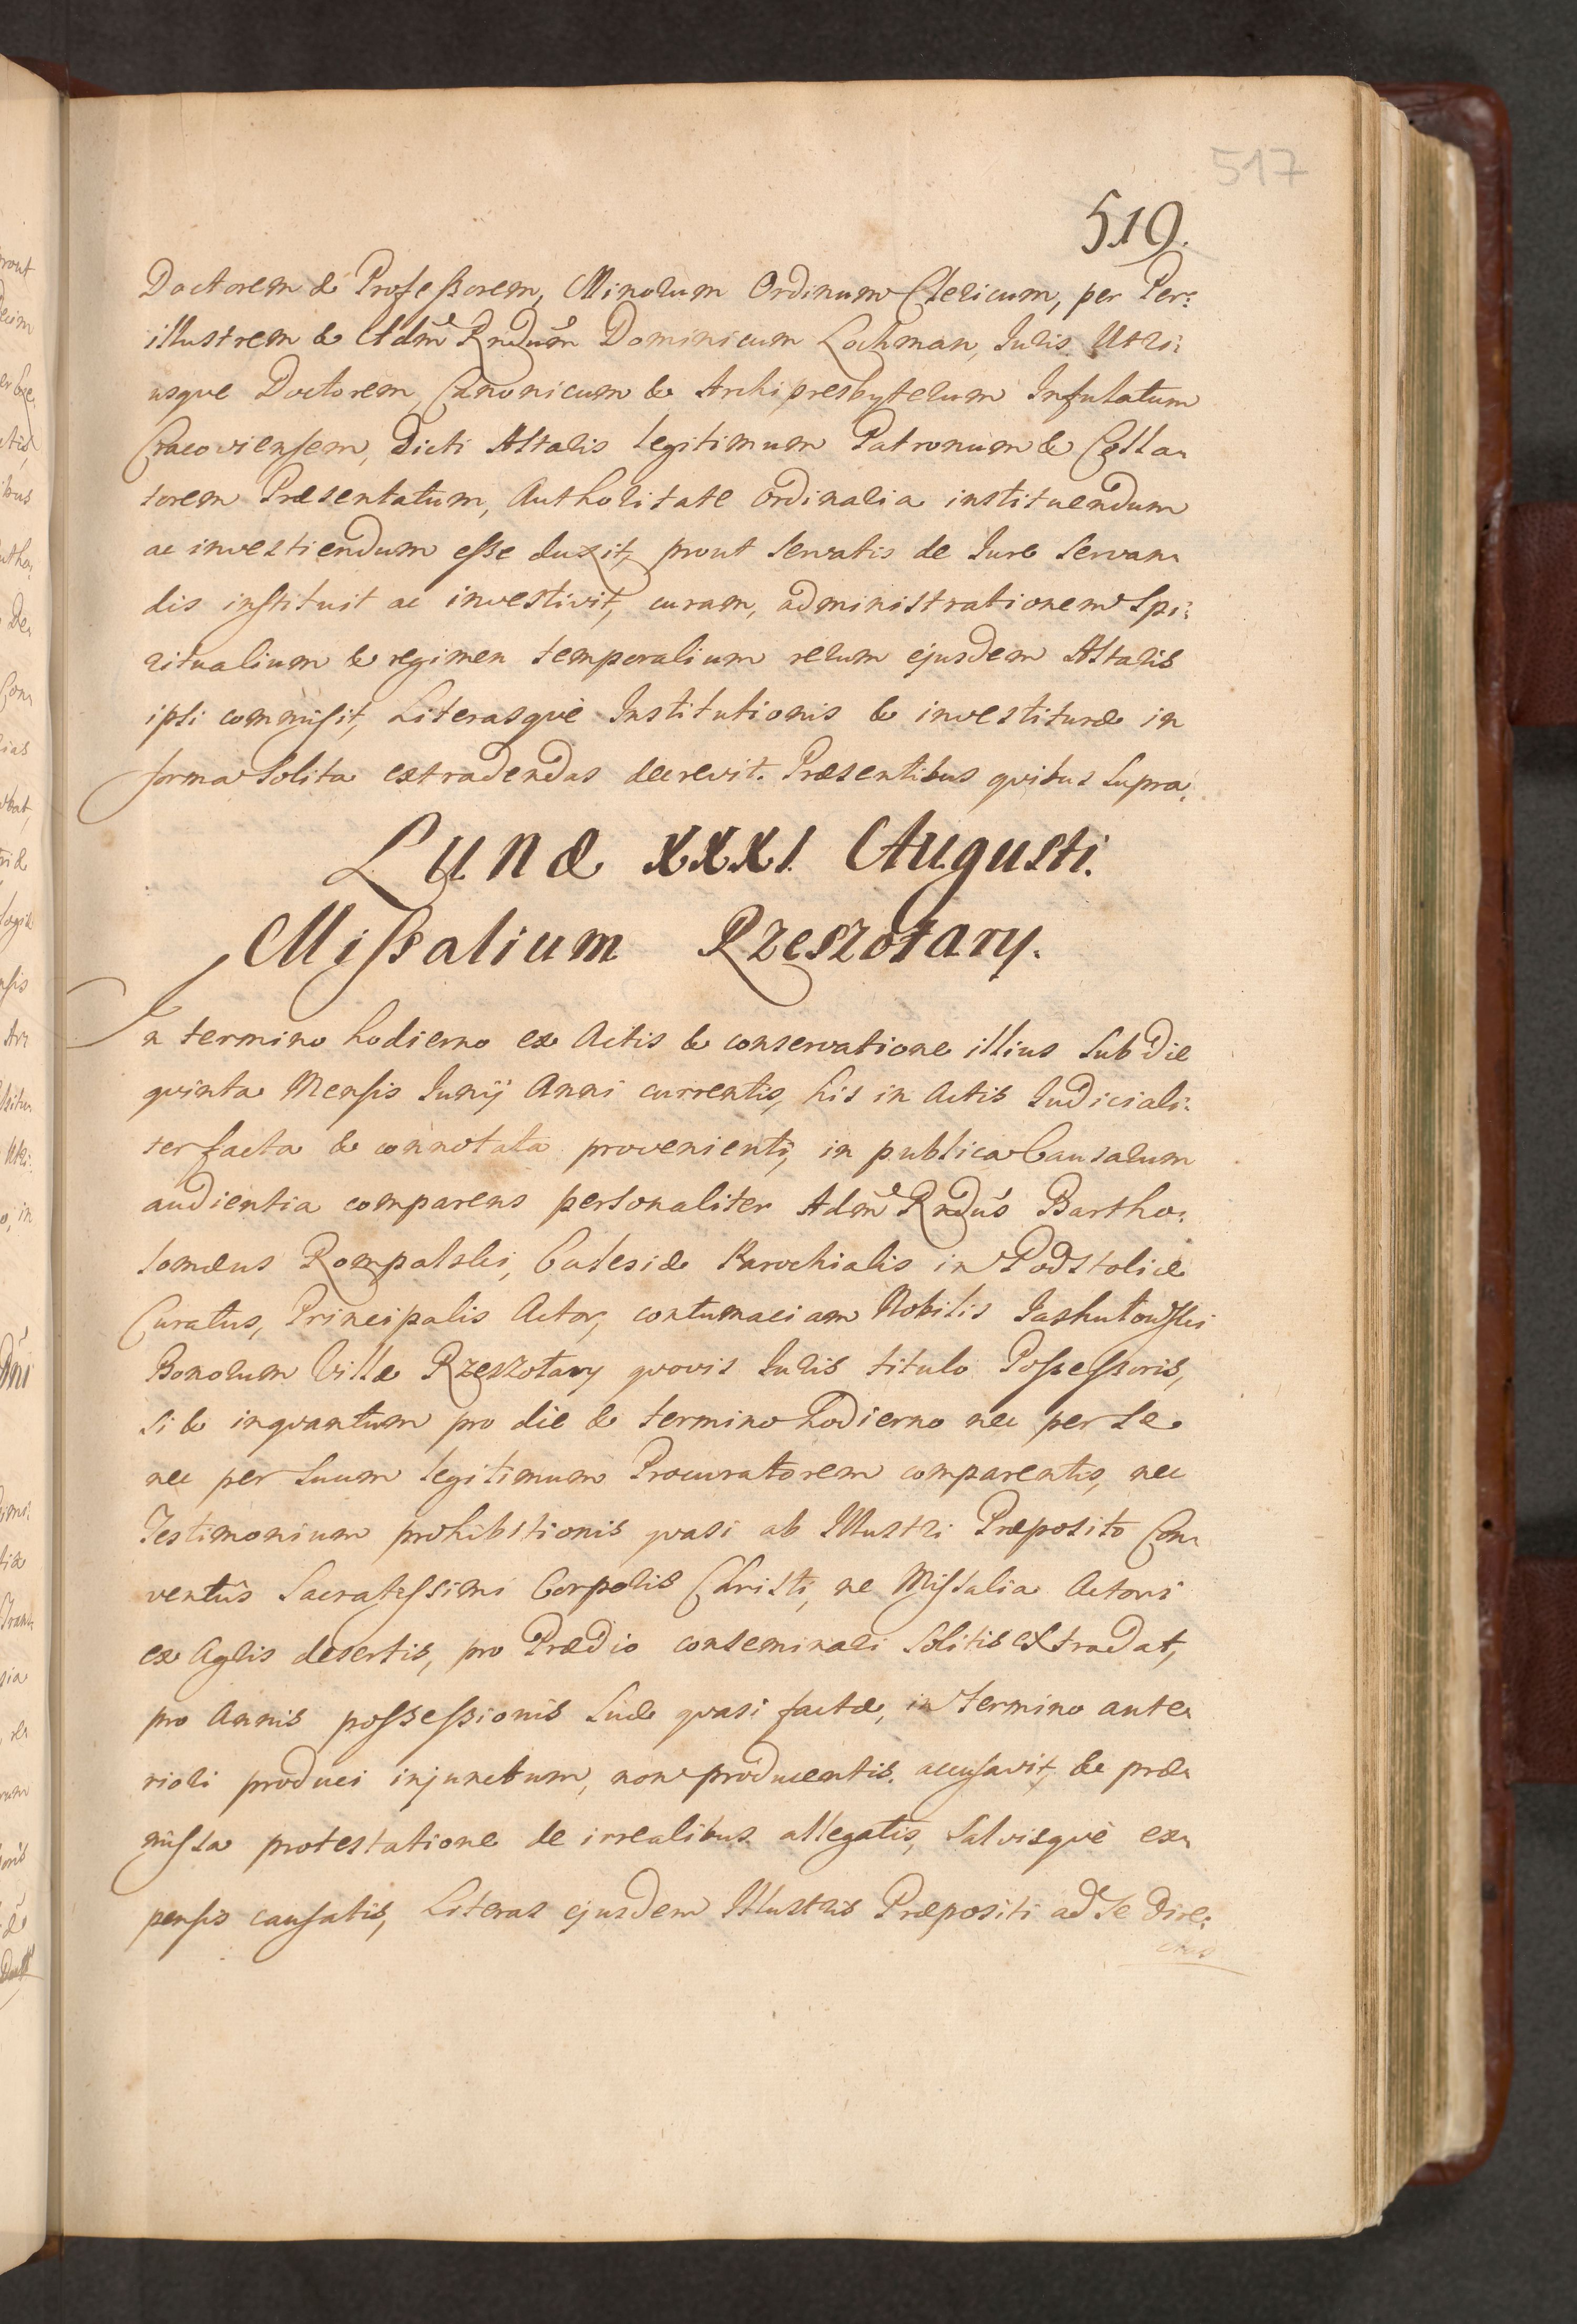 517
519.
Doctorem & Professorem, Minorum Ordinum Clericum, per Per:
illustrem & Adm̃ Rndum̃ Dominicum Lochman, Juris Utri:
usque Doctorem, Canonicum & Archipresbyterum Infulatum
Cracoviensem, Dicti Altaris legitimum Patronum & Colla:
torem Præsentatum, Authoritate Ordinaria instituendum
ac investiendum esse duxit, prout servatis de Jure servan:
dis instituit ac investivit, curam, administrationem Spi:
ritualium & regimen temporalium rerum ejusdem Altaris
ipsi commisit, Literasquè Institutionis & investituræ in
forma solita extradendas decrevit. Præsentibus quibus supra.
Lunæ XXXI Augusti.
Missalium Rzeszotary.
In termino hodierno ex Actis & conservatione illius sub die
quinta Mensis Junij Anni currentis, his in Actis Judiciali:
ter facta & connotata provenienti, in publica Causarum
audientia comparens personaliter Adm̃ Rndus̃ Bartho:
lomæus Rompalski, Ecclesiæ Parochialis in Podstolice
Curatus, Principalis Actor, contumaciam Nobilis Jaskutowski
Bonorum Villæ Rzeszotary quovis Juris titulo Possessoris,
si & inquantum pro die & termino hodierno nec per se
nec per suum legitimum Procuratorem comparentis, nec
Testimonium prohibitionis quasi ab Illustri Præposito Con:
ventûs Sacratissimi Corporis Christi, ne Missalia Actori
ex Agris desertis, pro Prædio conseminari solitis extradat,
pro Annis possessionis suæ quasi factæ, in termino ante:
riori produci injunctum, non producentis. accusavit, & præ:
missa protestatione de irrealibus allegatis, Salvisquè ex:
pensis causatis, Literas ejusdem Illustris Præpositi ad se dire:
ctas